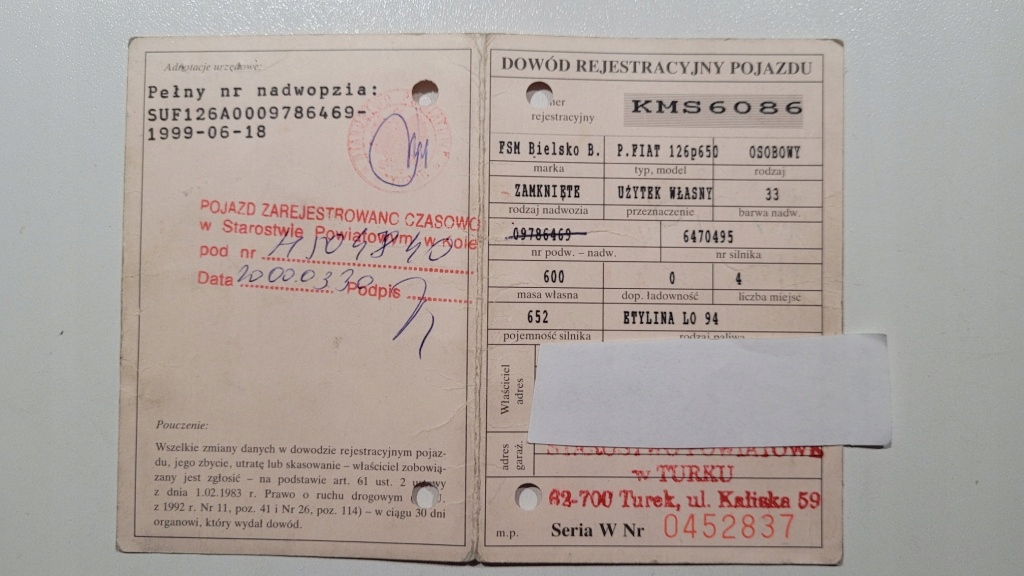 Adnotacje urzędowe:
Pełny nr nadwopzia:
SUF126A0009786469-
1999-06-18
POJAZD ZAREJESTROWANO CZASOWO
w Starostwie Powiatowym w Kole
pod nr
Data 2000.03.30 Podpis
Pouczenie:
Wszelkie zmiany danych w dowodzie rejestracyjnym pojaz-
du, jego zbycie, utratę lub skasowanie – właściciel zobowią-
zany jest zgłosić – na podstawie art. 61 ust. 2 ustawy
z dnia 1.02.1983 r. Prawo o ruchu drogowym
1992 r. Nr 11, poz. 41 i Nr 26, poz. 114) – w ciągu 30 dni
organowi, który wydał dowód.
DOWÓD REJESTRACYJNY POJAZDU
rejestracyjny KMS6086
FSM Bielsko B. P.FIAT 126p650 OSOBOWY
marka typ, model rodzaj
ZAMKNIĘTE UŻYTEK WŁASNY 33
rodzaj nadwozia przeznaczenie barwa nadw.
09786469 6470495
nr podw. – nadw. nr silnika
600 0 4
masa własna dop. ładowność liczba miejsc
652 ETYLINA LO 94
pojemność silnika rodzaj paliwa
Właściciel
adres
adres
garaż.
STAROSTWO POWIATOWE
w TURKU
62-700 Turek, ul. Kaliska 59
m.p. Seria W Nr 0452837